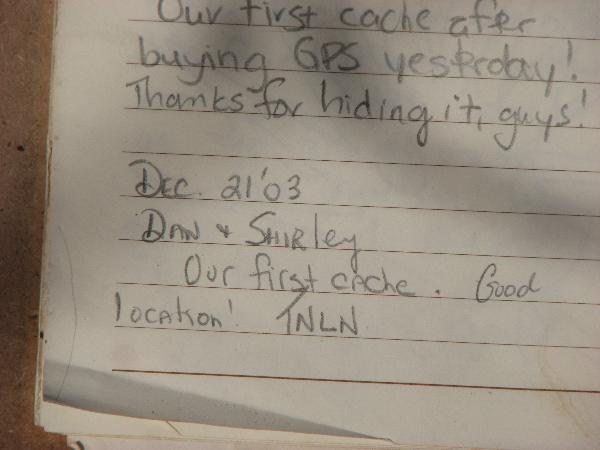 Our first cache after
buying GPS yesterday!
Thanks for hiding it, guys!
DEC. 21'03
DAN + SHIRley
Our first cache. Good
location! TNLN